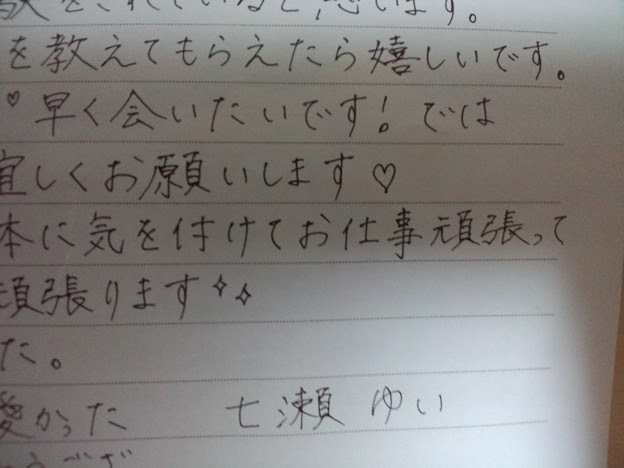 をされていると思います。
を教えてもらえたら嬉しいです。
♡早く会いたいです！では
宜しくお願いします♡
体に気を付けてお仕事頑張って
頑張ります✧✧
た。
愛かった 七瀬 ゆい